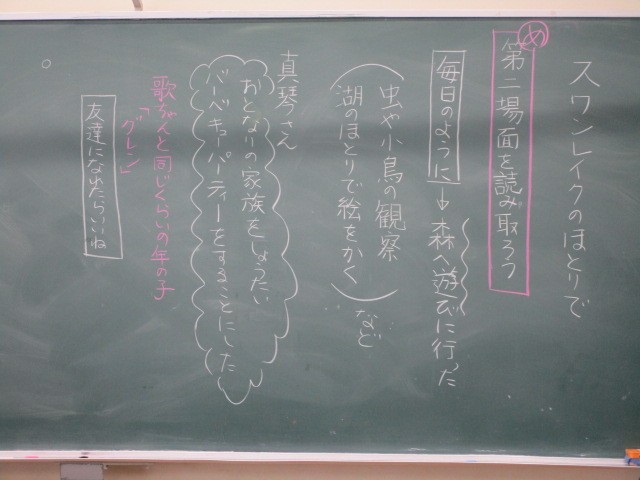 スワンレイクのほとりで
め
第二場面を読み取ろう
毎日のように→森へ遊びに行った
虫や小鳥の観察
湖のほとりで絵をかく
など
真琴さん
おとなりの家族をしょうたい
バーベキューパーティーをすることにした
歌ちゃんと同じくらいの年の子
「グレン」
友達になれたらいいね